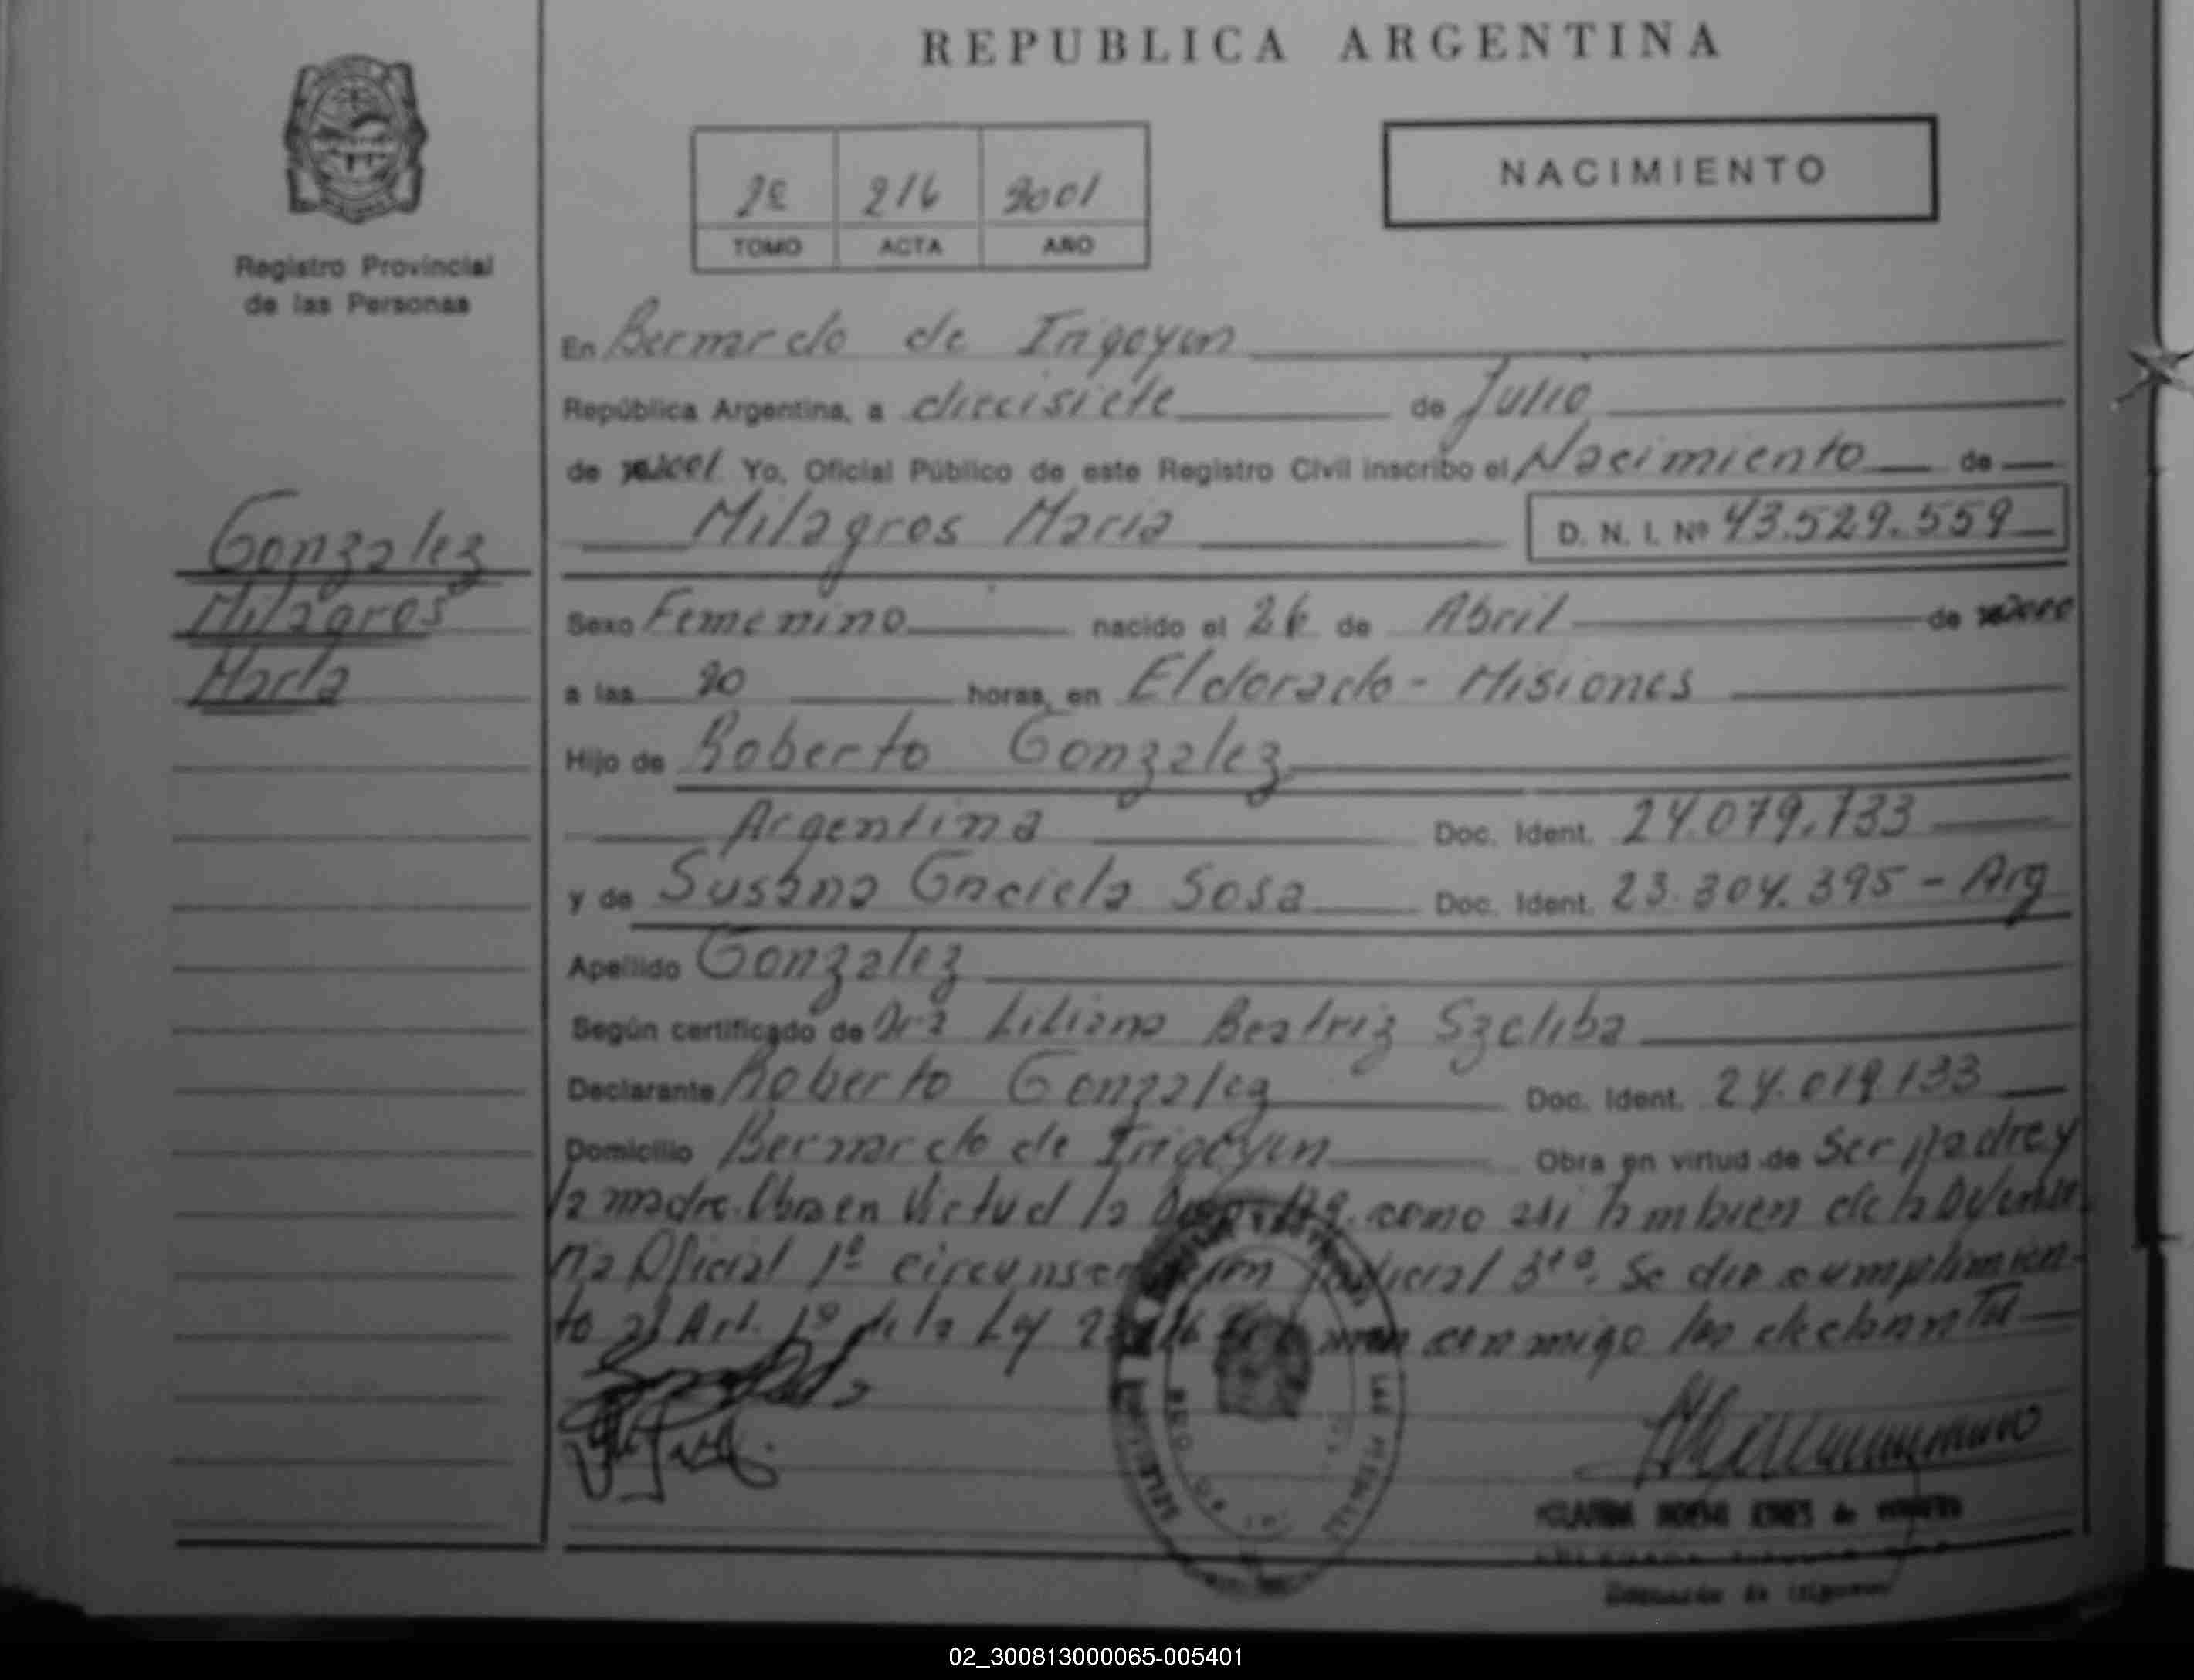 REPUBLICA ARGENTINA
NACIMIENTO
2º 216 2001
TOMO ACTA AÑO
Registro Provincial
de las Personas
En Bernardo de Irigoyen
República Argentina, a diecisiete de Julio
de 2001 Yo, Oficial Público de este Registro Civil inscribo el Nacimiento de
Milagros Maria D. N. I. Nº 43.529.559
Gonzalez
Milagros
Maria
Sexo Femenino nacido el 26 de Abril de
a las 20 horas, en Eldorado - Misiones
Hijo de Roberto Gonzalez
Argentina Doc. Ident. 24.079.133
y de Susana Graciela Sosa Doc. Ident. 23.304.395 - Arg
Apellido Gonzalez
Según certificado de Dra Liliana Beatriz
Declarante Roberto Gonzalez Doc. Ident. 24.079.133
Domicilio Bernardo de Irigoyen Obra en virtud de Ser padre y
la madre. Obra en Virtud la como asi tambien de la Defenso
ria Oficial 1º circunscripcion Judicial 3ra. Se dio cumplimien
to al Art. 1º de la Ley conmigo los declarantes
02_300813000065-005401